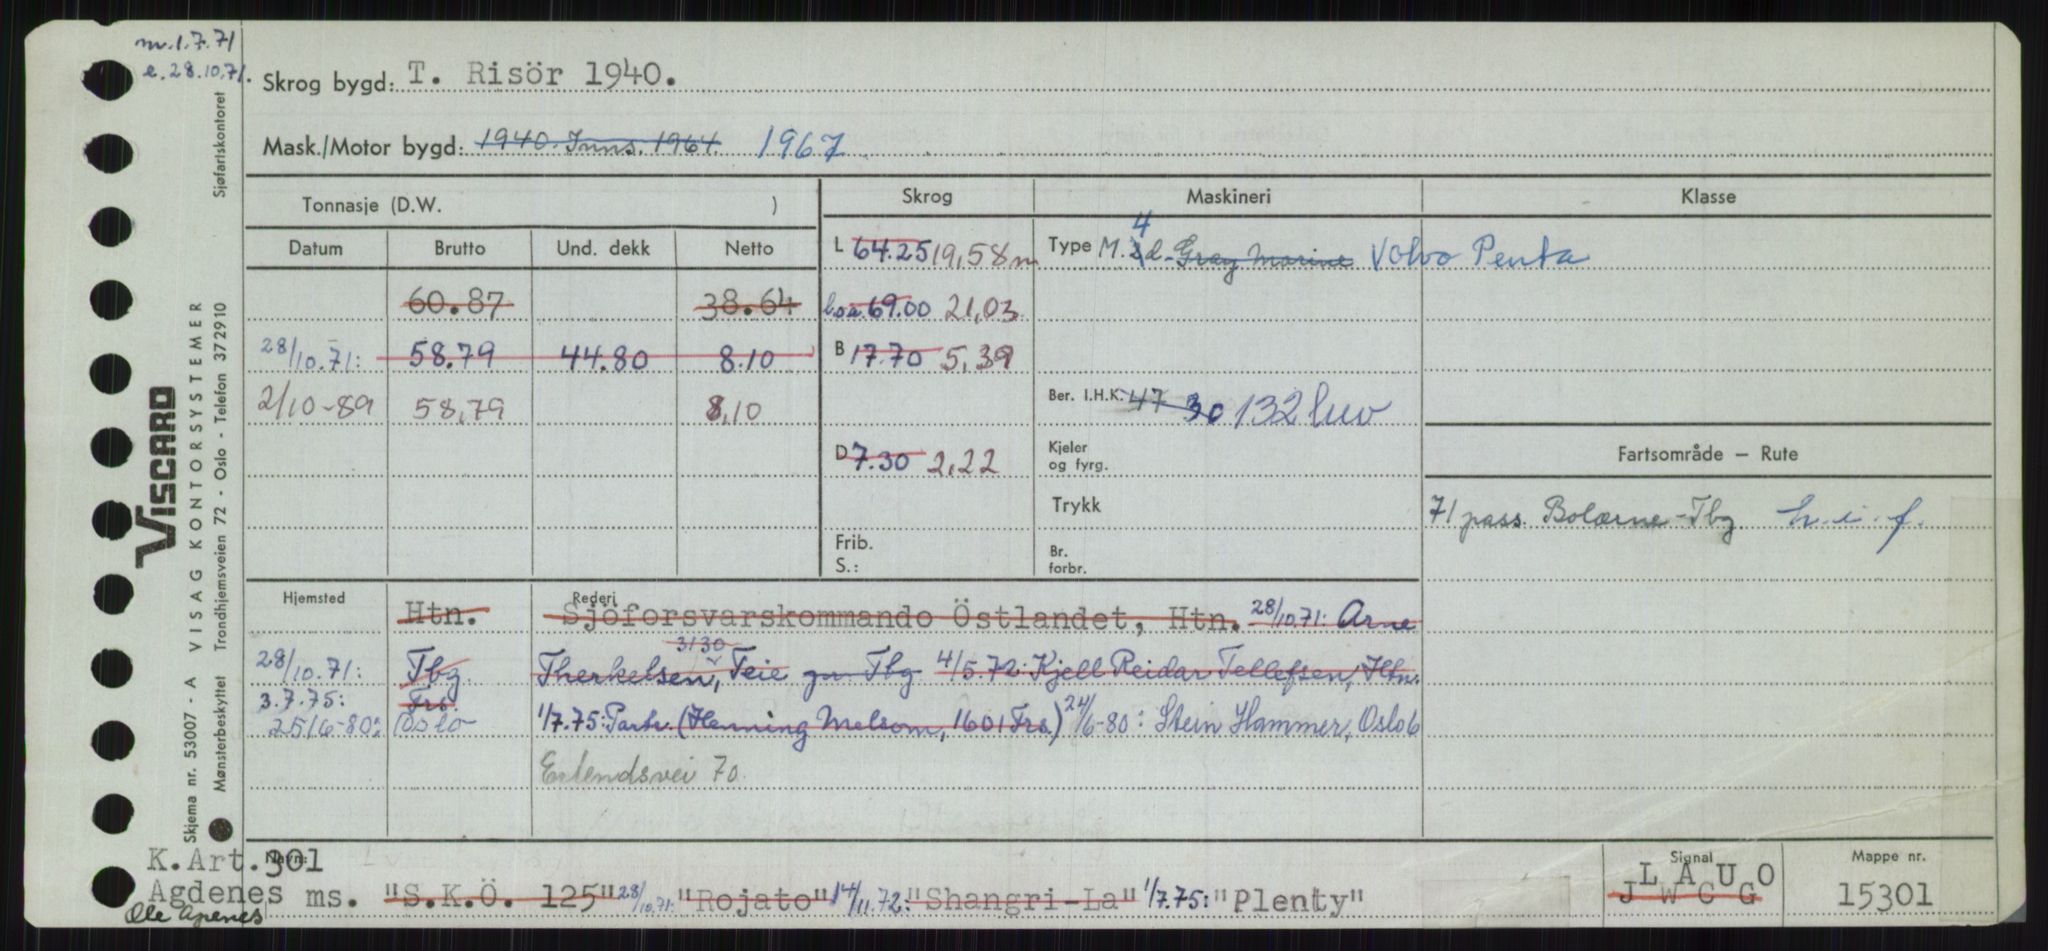 m. 1.7.71
e. 28.10.71.
Skrog bygd: T. Risör 1940.
Mask./Motor bygd: 1940. Inns. 1964. 1967
Tonnasje (D.W. )
Skrog Maskineri Klasse
Datum Brutto Und. dekk Netto
L 64.25 19,58 m
Type M. 4 d. Gray Marine Volvo Penta
60.87 38.64
l.o.a. 69.00 21,03
28/10.71: 58.79 44.80 8.10
B 17.70 5,39
2/10-89 58,79 8,10
Ber. I.H.K. 47 30 132 hw
D 7.30 2,22
Kjeler
og fyrg.
Fartsområde – Rute
Trykk
71 pass. Bolærne-Tbg h.i.f.
Frib.
S.:
Br.
forbr.
Hjemsted Rederi
Htn. Sjöforsvarskommando Östlandet, Htn. 28/10.71: Arne
3130
28/10.71: Tbg Therkelsen, Teie pr. Tbg 4/5.72: Kjell Reidar Tellefsen, Htn.
3.7.75: Frs.
25/6-80: Oslo 1/7.75: Partr. (Henning Melsom, 1601 Frs.) 24/6-80: Stein Hammer, Oslo 6
Erlendsvei 7a.
K.Art.301
Navn:
Agdenes ms. "S.K.Ö. 125" 28/10.71: "Rojato" 14/11.72: "Shangri-La" 1/7.75: "Plenty"
Ole Apenes
Signal
L A U O
J W C G
Mappe nr.
15301
VISCARD
Skjema nr. 53007 - A VISAG KONTORSYSTEMER
Mønsterbeskyttet Trondhjemsveien 72 - Oslo - Telefon 372910 Sjøfartskontoret